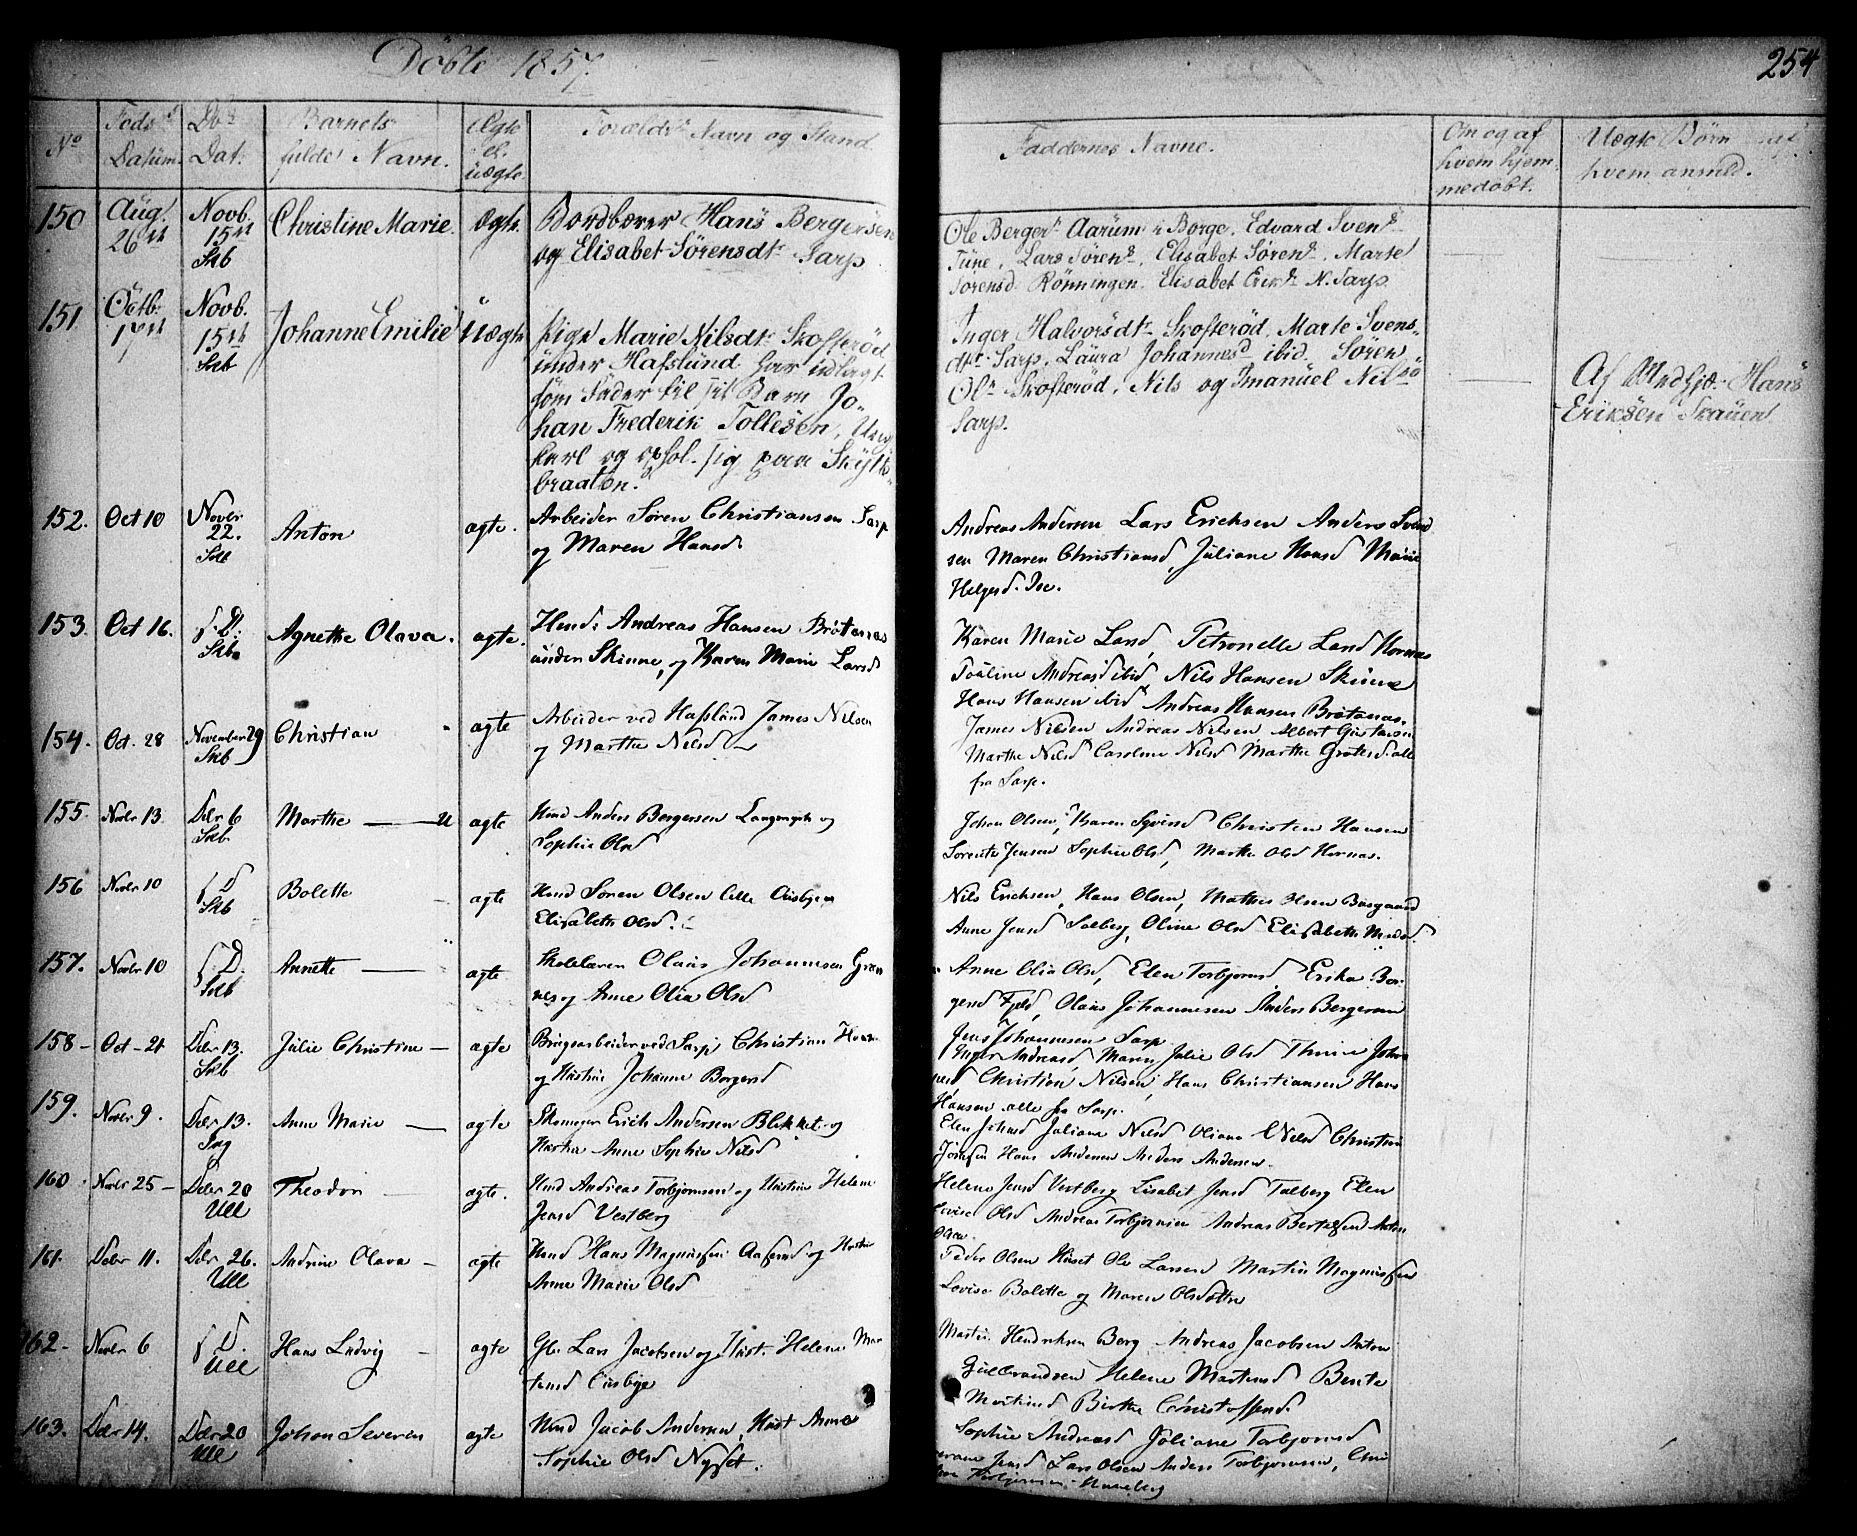 Döbte 1857.
254
No
Föds.
Datum.
Dat.
Barnets
fulde Navn.
Ægte
el.
üægte.
Forældrs Navn og Stand
Faddernes Navne.
Om og af
hvem hjem-
medöbt.
Uægte Börn af
hvem anmeld.
150
Aug.
26th
Novb.
15th
Skb
Christine Marie.
Ægte.
Bordbærer Hans Bergersen
og Elisabet Sörensdtr Sarp
Ole Bergers. Aarum i Borge. Edvard Svens.
Tüne, Lars Sörens. Elisabet Sörens. Marte
Sorensd. Rönningen. Elisabet Eriks. N. Sarp.
151
Octb.
17th
Novb.
15th
Skb
Johanne Emilie
Uægte
Pige Marie Nilsdtr Skofteröd
ünder Hafslünd har üdlagt
som Fader til sit Barn Jo-
han Frederik Tollesen, Ung
karl og ophol. sig paa
braaten.
Inger Halvorsdtr Skofteröd, Marte Svens-
dtr Sarp, Laüra Johannesd ibid. Sören
Ols. Skofteröd, Nils og Imanüel Nils.
Sarp.
Af Hans
Eriksen Skaüen
152.
Oct 10
Novbr
22.
Skb
Anton
ægte.
Arbeider Sören Christiansen Sarp
og Maren Hansd.
Andreas Andersen Lars Ericksen Anders Svend
sen Maren Christiansd, Juliane Hansd Marie
Helgesd. Ise.
153.
Oct 16.
s. D.
Skb
Agnethe Olava.
ægte.
Husd. Andreas Hansen Bröternes
ünder Skinne, og Karen Marie Larsd
Karen Marie Land, Petronelle Land Hornæs
Paüline Andreasd ibid, Nils Hansen Skinne
Hans Hansen ibid Andreas Hansen Brötenæs.
154.
Oct. 28
November 29
Skb
Christian
ægte
Arbeider ved Hafslünd James Nilsen
og Marthe Nilsd
James Nilsen Andreas Nilsen Albert Güstavsen
Marthe Nilsd Caroline Nilsd Marthe alle
fra Sarp.
155.
Novbr 13.
Debr 6
Skb
Marthe
ægte
Husd Anders Borgersen og
Sophie Olsd
Johan Olsen, Karen Syversd Christen Hansen
Sorente Jensen Sophie Olsd, Marthe Olsd Hornæs.
156
Novbr 10
s. D
Skb
Bolette
ægte
Husd Sören Olsen Lille
Elisabeth Olsd.
Nils Ericksen, Hans Olsen, Mathis Olsen Borgaard
Anne Jensd Solberg, Oline Olsd Elisabeth
157.
Novbr 10
s. D.
Skb
Annette
ægte
Skolelærer Olaüs Johannesen Græn
næs og Anne Olia Olsd
Anne Olia Olsd, Elen Torbjornsd, Erika Bor-
gersd Fjeld, Olaüs Johannesen Anders Borgersen
Jens Johannesen Sarp
158
Oct 21
Debr 13.
Skb
Julie Christine
ægte
Brügsarbeider ved Sarp Christian
og Hüstrü Johanne Borgersd
Inger Andreasd, Maren Julie Olsd Johan
nesd Christian Nilsen, Hans Christiansen Hans
Hansen alle fra Sarp.
159.
Novbr 9.
Debr 13.
Ing
Anne Marie
ægte
Skomager Erich Andersen og
Hüstrü Anne Sophie Nilsd
Elen Juliane Nilsd Oliana Nilsd Christian
Josefsen Hans Andersen Anders Andersen.
160
Novbr 25
Debr 20
Ull
Theodor
ægte.
Husd Andreas Torbjornsen og Hüstrü Helene
Jensd Vestberg
Helene Jensd Vestberg Lisabet Jensd Talberg Elen
Lovise Olsd Andreas Torbjornsen Andreas Bertelsen Anton
161.
Debr 11.
Debr 26.
Ull
Andrine Olava
ægte
Husd Hans Magnüssen og Hüstrü
Anne Marie Olsd
Peder Olsen Hüset Ole Larsen Martin Magnüssen
Lovise Bolette og Maren
162
Novbr 6
s. D.
Ull
Hans Ludvig
ægte
Lars Jacobsen og Hüst. Helene Mar
tinsd
Martin Hendriksen Berg Andreas Jacobsen Anton
Gülbrandsen Helene Martinsd Bente
Martinsd Birthe Christoffersd.
163.
Debr 14.
Debr 20
Ull
Johan Severin
ægte
Husd Jacob Andersen, Hüst Anne
Sophie Olsd
Sophie Andreasd Jüliane Torbjornsd
Jensd Lars Olsen Anders Torbjornsen,